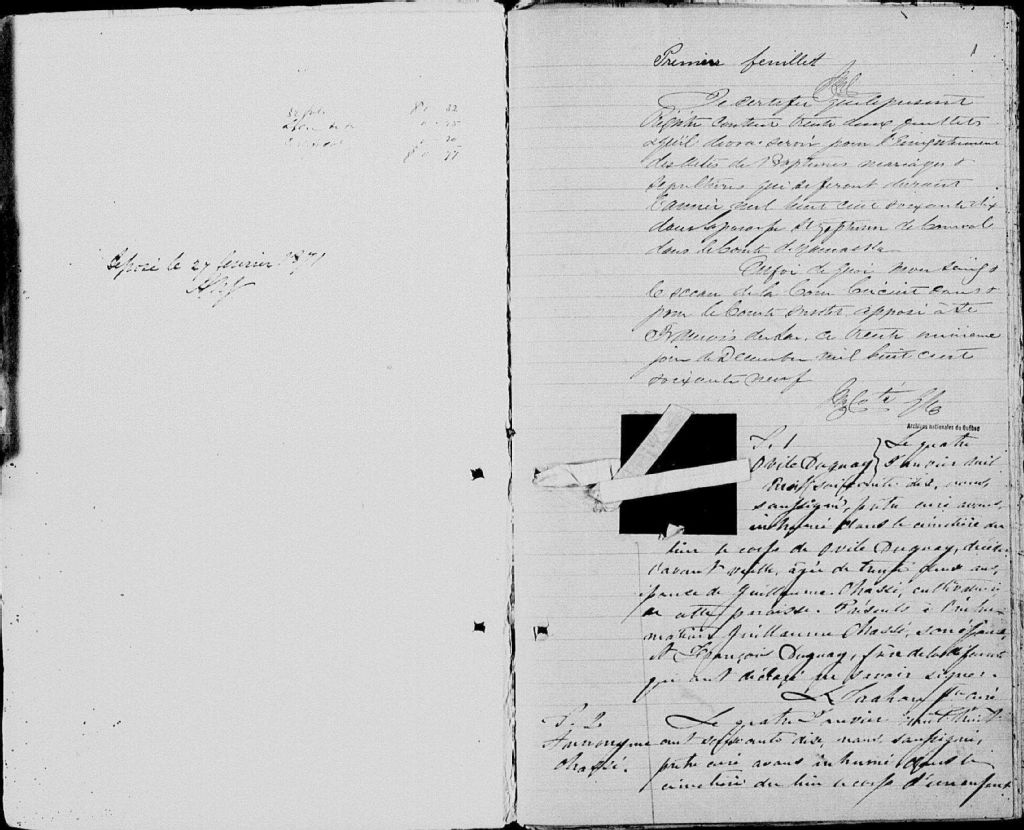 $ 0 32
0 25
0 20
$ 0 77
déposé le 27 février 1871
1
Premier feuillet
Je certifie que le présent
Régistre contient trente deux feuillets
& qu'il devra servir pour l'enregistrement
des Actes de Baptêmes mariages &
Sépultures qui se feront durant
l'année mil huit cent soixante dix
dans la paroisse St Zéphirin de Courval
dans le Comté de Yamaska
En foi de quoi mon seing &
le sceau de la Cour Circuit dans &
pour le Comté susdit apposé à St
François du Lac, ce trente unième
jour de Décembre mil huit cent
soixante neuf
Archives nationales du Québec
S. 1
Ovile Duguay
Le quatre
Janvier huit
cent soixante dix, nous,
soussigné, prêtre curé avons
inhumé dans le cimetière du
lieu le corps de Ovile Duguay, décédée
l'avant veille, âgée de trente deux ans,
épouse de Guillaume Chassé, cultivateur
de cette paroisse. Présents à l'inhu-
mation Guillaume Chassé, son époux,
et François Duguay, frère de la défunte
qui ont déclaré ne savoir signer.
Ptre curé
S. 2
Annonyme
Chassé.
Le quatre Janvier mil huit
cent soixante dix, nous, soussigné,
prêtre curé avons inhumé dans le
cimetière du lieu le corps d'un enfant